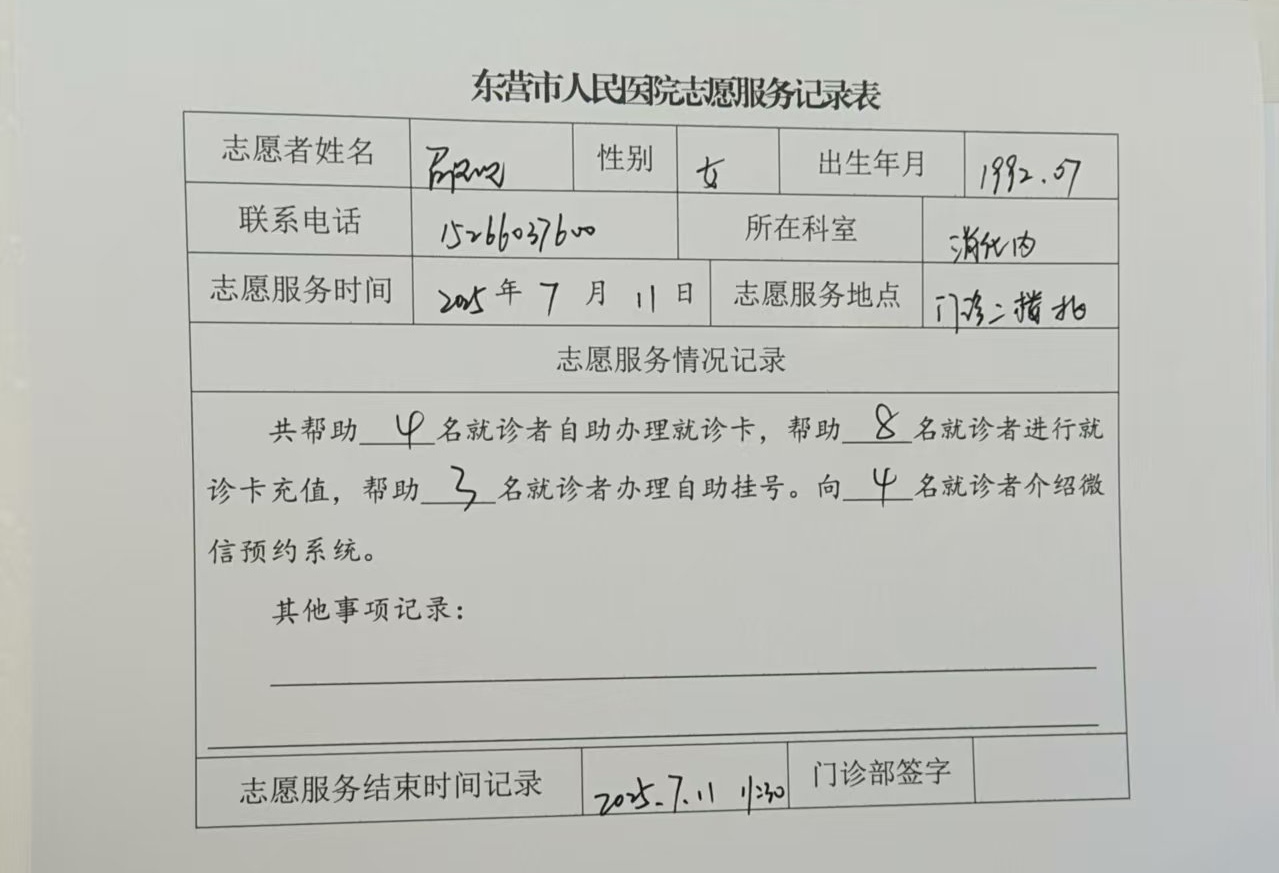 东营市人民医院志愿服务记录表
志愿者姓名 性别 女 出生年月 1992.07
联系电话 15266037600 所在科室 消化内
志愿服务时间 2025 年 7 月 11 日 志愿服务地点 门诊二楼北
志愿服务情况记录
共帮助 4 名就诊者自助办理就诊卡，帮助 8 名就诊者进行就
诊卡充值，帮助 3 名就诊者办理自助挂号。向 4 名就诊者介绍微
信预约系统。
其他事项记录：
志愿服务结束时间记录 2025.7.11 11:30 门诊部签字